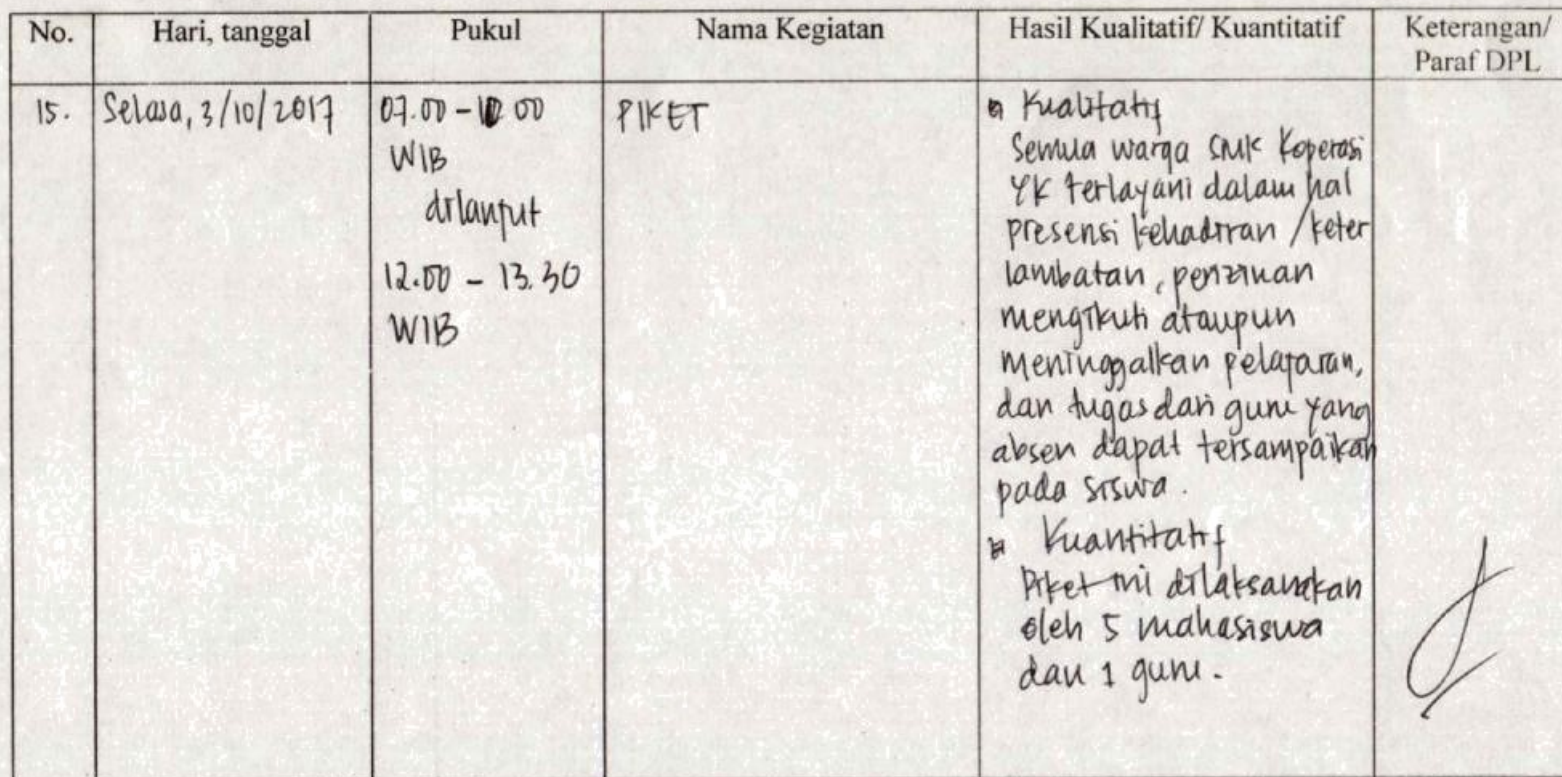 No. Hari, tanggal Pukul Nama Kegiatan Hasil Kualitatif/ Kuantitatif Keterangan/
Paraf DPL
15. Selasa, 3/10/2017 07.00 - 10.00 PIKET Kualitatif
WIB Semua warga SMK Koperasi
dilanjut YK terlayani dalam hal
presensi kehadiran / keter
12.00 - 13.30 lambatan, perizinan
WIB mengikuti ataupun
meninggalkan pelajaran,
dan tugas dari guru yang
absen dapat tersampaikan
pada siswa.
Kuantitatif
Piket ini dilaksanakan
oleh 5 mahasiswa
dan 1 guru.